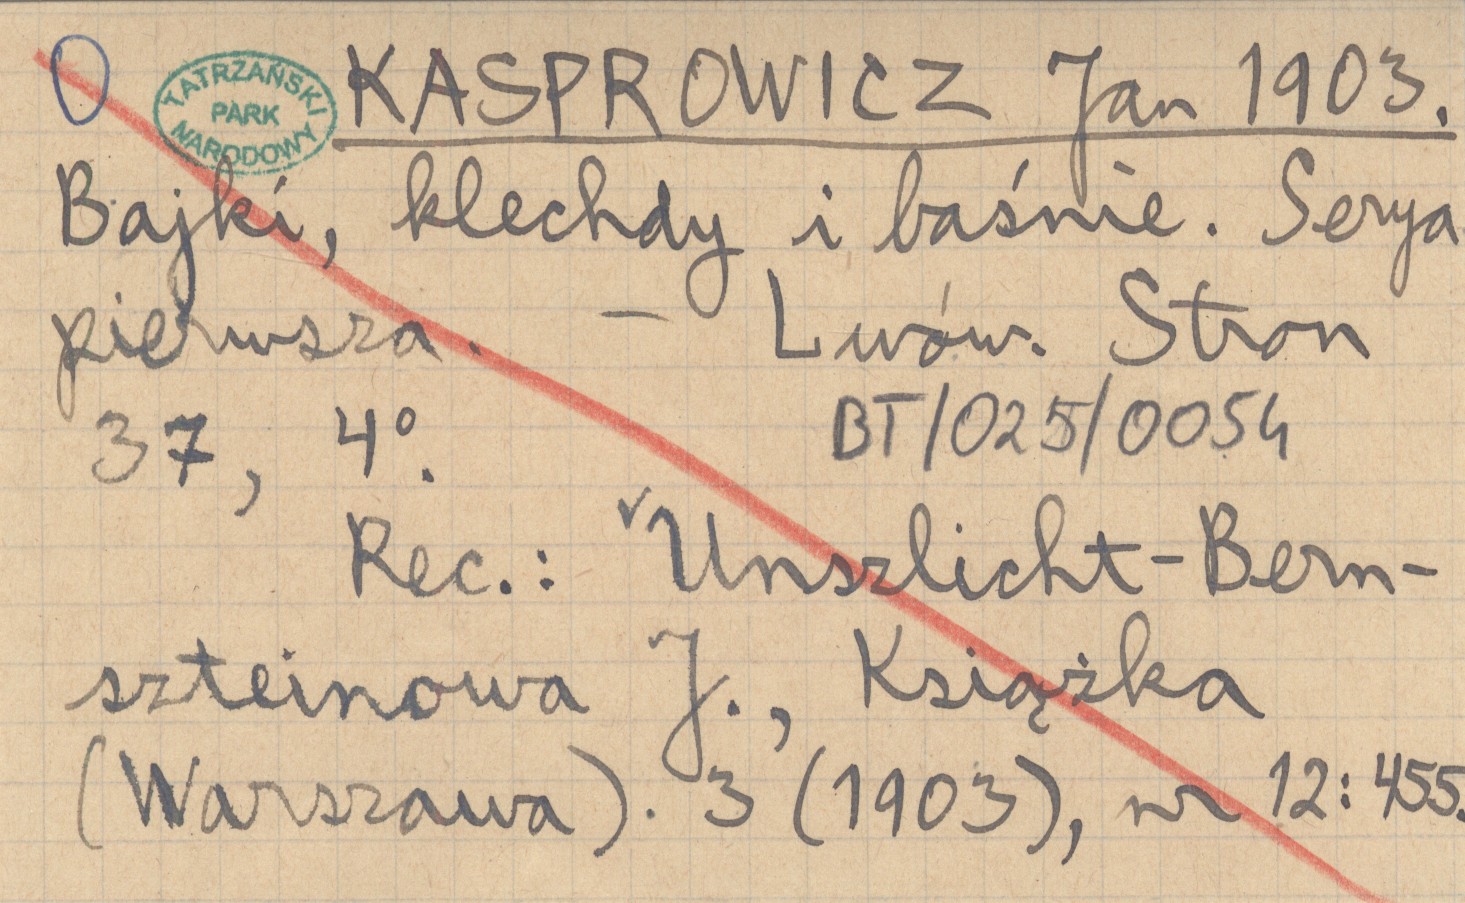 O
TATRZAŃSKI
PARK
NARODOWY
KASPROWICZ Jan 1903.
Bajki, klechdy i baśnie. Serya
pierwsza. – Lwów. Stron
37, 4º.
BT/025/0054
Rec.: Unszlicht-Bern-
szteinowa J., Książka
(Warszawa). 3 (1903), nr 12:455.